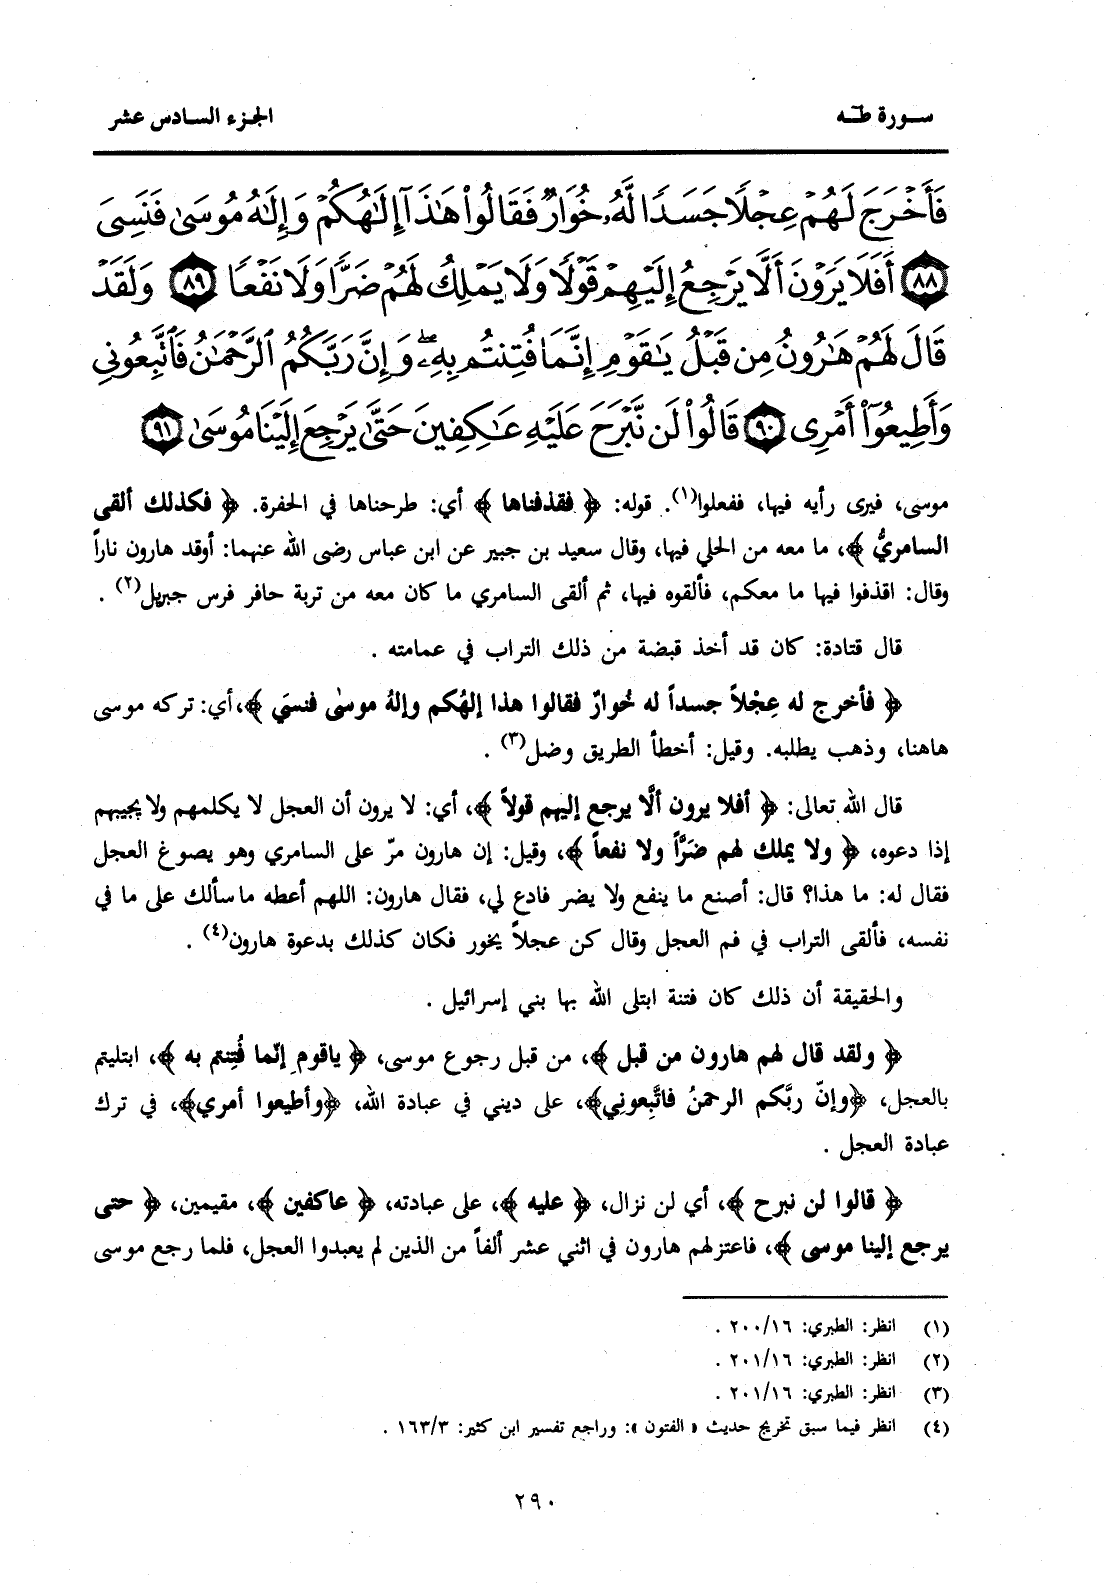 سورة طه
الجزء السادس عشر
فَأَخْرَجَ لَهُمْ عِجْلًا جَسَدًا لَّهُۥ خُوَارٌ فَقَالُوا۟ هَٰذَآ إِلَٰهُكُمْ وَإِلَٰهُ مُوسَىٰ فَنَسِىَ
﴿٨٨﴾ أَفَلَا يَرَوْنَ أَلَّا يَرْجِعُ إِلَيْهِمْ قَوْلًا وَلَا يَمْلِكُ لَهُمْ ضَرًّا وَلَا نَفْعًا ﴿٨٩﴾ وَلَقَدْ
قَالَ لَهُمْ هَٰرُونُ مِن قَبْلُ يَٰقَوْمِ إِنَّمَا فُتِنتُم بِهِۦ ۖ وَإِنَّ رَبَّكُمُ ٱلرَّحْمَٰنُ فَٱتَّبِعُونِى
وَأَطِيعُوٓا۟ أَمْرِى ﴿٩٠﴾ قَالُوا۟ لَن نَّبْرَحَ عَلَيْهِ عَٰكِفِينَ حَتَّىٰ يَرْجِعَ إِلَيْنَا مُوسَىٰ ﴿٩١﴾
موسى، فيرى رأيه فيها، ففعلوا(١). قوله: ﴿ فقذفناها ﴾ أي: طرحناها في الحفرة. ﴿ فكذلك ألقى
السامريُّ ﴾، ما معه من الحلي فيها، وقال سعيد بن جبير عن ابن عباس رضى الله عنهما: أوقد هارون ناراً
وقال: اقذفوا فيها ما معكم، فألقوه فيها، ثم ألقى السامري ما كان معه من تربة حافر فرس جبريل(٢) .
قال قتادة: كان قد أخذ قبضة من ذلك التراب في عمامته .
﴿ فأخرج له عِجْلاً جسداً له خُوارٌ فقالوا هذا إلهُكم وإلهُ موسىٰ فنسيَ ﴾، أي: تركه موسى
هاهنا، وذهب يطلبه. وقيل: أخطأ الطريق وضل(٣) .
قال الله تعالى: ﴿ أفلا يرون ألَّا يرجع إليهم قولاً ﴾، أي: لا يرون أن العجل لا يكلمهم ولا يجيبهم
إذا دعوه، ﴿ ولا يملك لهم ضَرَّاً ولا نفعاً ﴾، وقيل: إن هارون مرّ على السامري وهو يصوغ العجل
فقال له: ما هذا؟ قال: أصنع ما ينفع ولا يضر فادع لي، فقال هارون: اللهم أعطه ما سألك على ما في
نفسه، فألقى التراب في فم العجل وقال كن عجلاً يخور فكان كذلك بدعوة هارون(٤) .
والحقيقة أن ذلك كان فتنة ابتلى الله بها بني إسرائيل .
﴿ ولقد قال لهم هارون من قبل ﴾، من قبل رجوع موسى، ﴿ ياقومِ إنّما فُتِنتم به ﴾، ابتليتم
بالعجل، ﴿وإنّ ربَّكم الرحمنُ فاتَّبِعونِي﴾، على ديني في عبادة الله، ﴿وأطيعوا أمري﴾، في ترك
عبادة العجل .
﴿ قالوا لن نبرح ﴾، أي لن نزال، ﴿ عليه ﴾، على عبادته، ﴿ عاكفين ﴾، مقيمين، ﴿ حتى
يرجع إلينا موسى ﴾، فاعتزلهم هارون في اثني عشر ألفاً من الذين لم يعبدوا العجل، فلما رجع موسى
(١) انظر: الطبري: ٢٠٠/١٦ .
(٢) انظر: الطبري: ٢٠١/١٦ .
(٣) انظر: الطبري: ٢٠١/١٦ .
(٤) انظر فيما سبق تخريج حديث « الفتون »: وراجع تفسير ابن كثير: ١٦٣/٣ .
٢٩٠